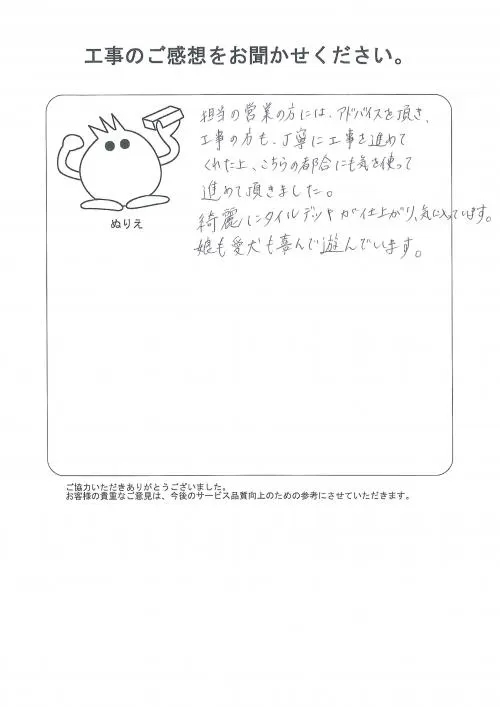 工事のご感想をお聞かせください。
担当の営業の方には、アドバイスを頂き、
工事の方も、丁寧に工事を進めて
くれた上、こちらの都合にも気を使って
進めて頂きました。
綺麗にタイルデッキが仕上がり、気に入っています。
娘も愛犬も喜んで遊んでいます。
ぬりえ
ご協力いただきありがとうございました。
お客様の貴重なご意見は、今後のサービス品質向上のための参考にさせていただきます。